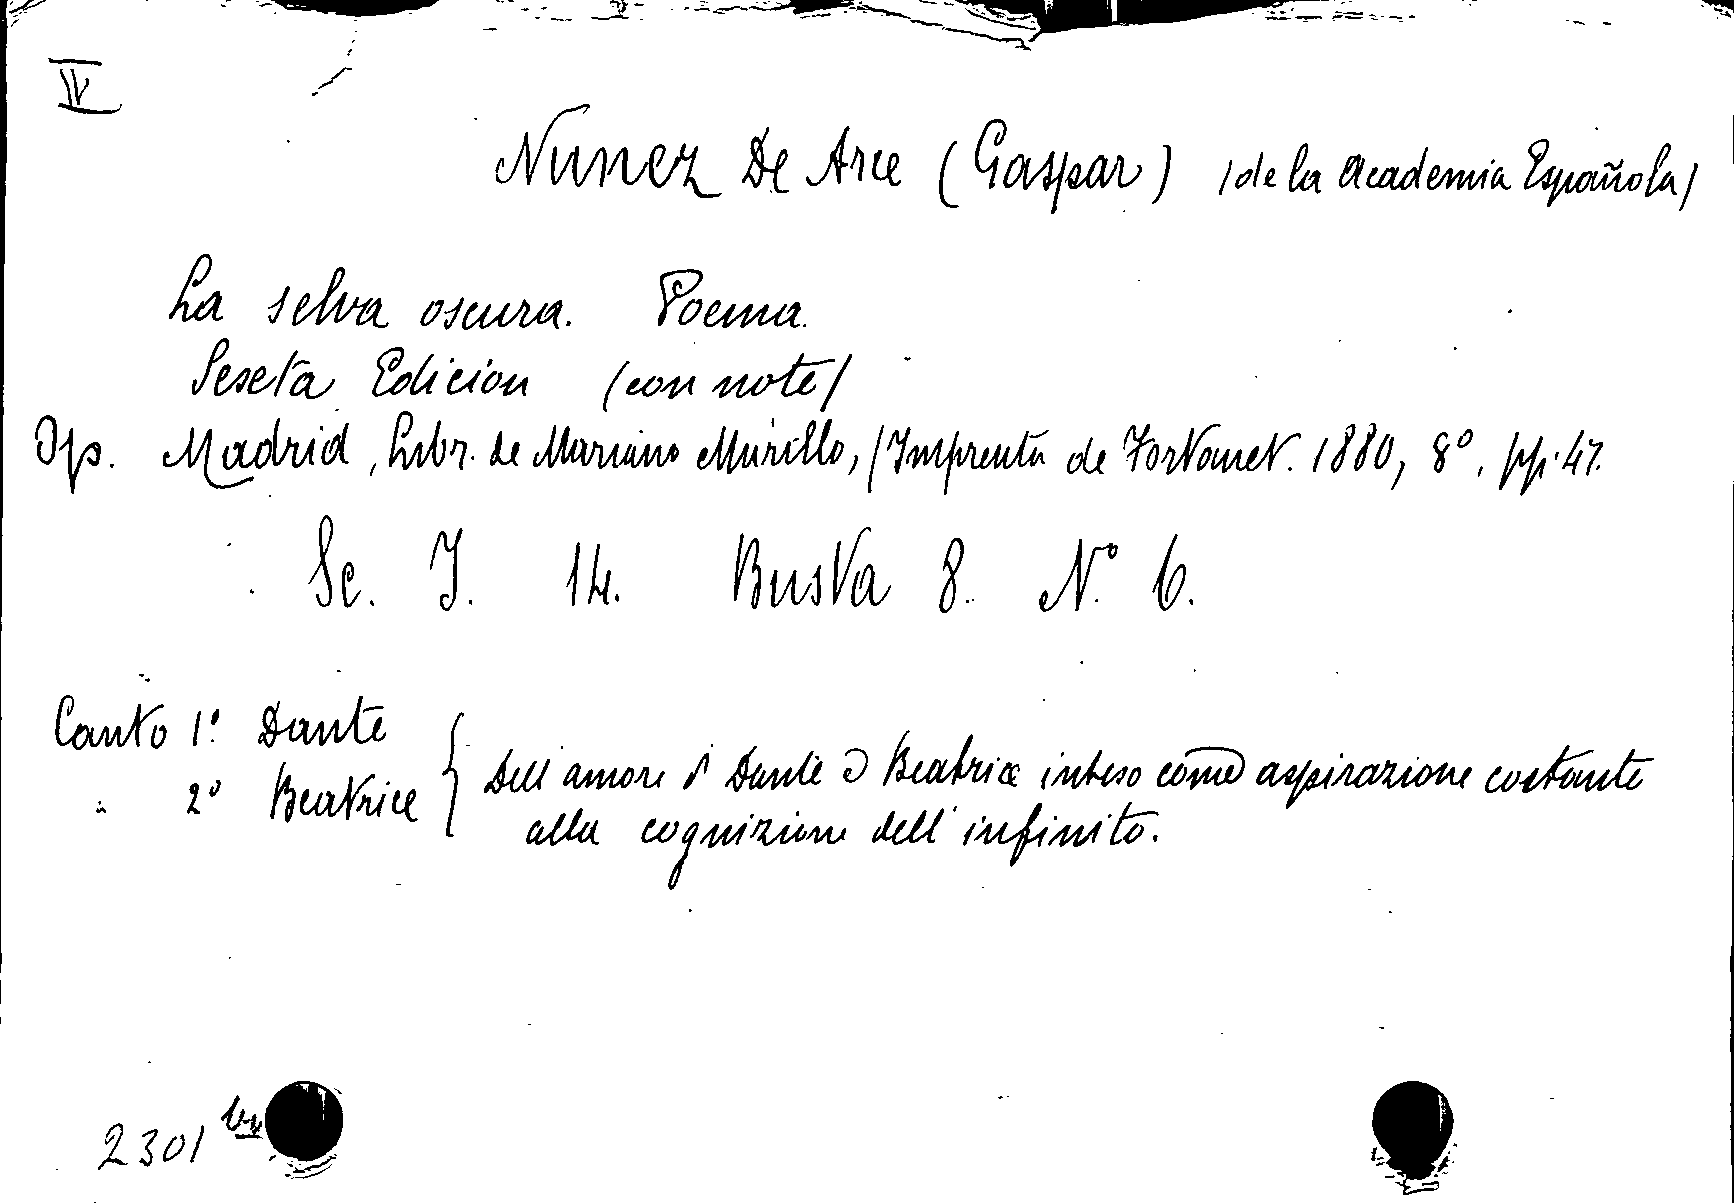 IV
Nunez De Arce (Gaspar) (de la Academia Española)
La selva oscura. Poema.
Seseta Edicion (con note)
Op. Madrid, Libr. de Mariano Murillo, (Imprenta de Fortanet. 1880, 8°, pp. 47.
Sc. I. 14. Busta 8. N.° 6.
Canto 1.° Dante
" 2° Beatrice
Dell'amore di Dante a Beatrice inteso come aspirazione costante
alla cognizione dell'infinito.
2301 bis